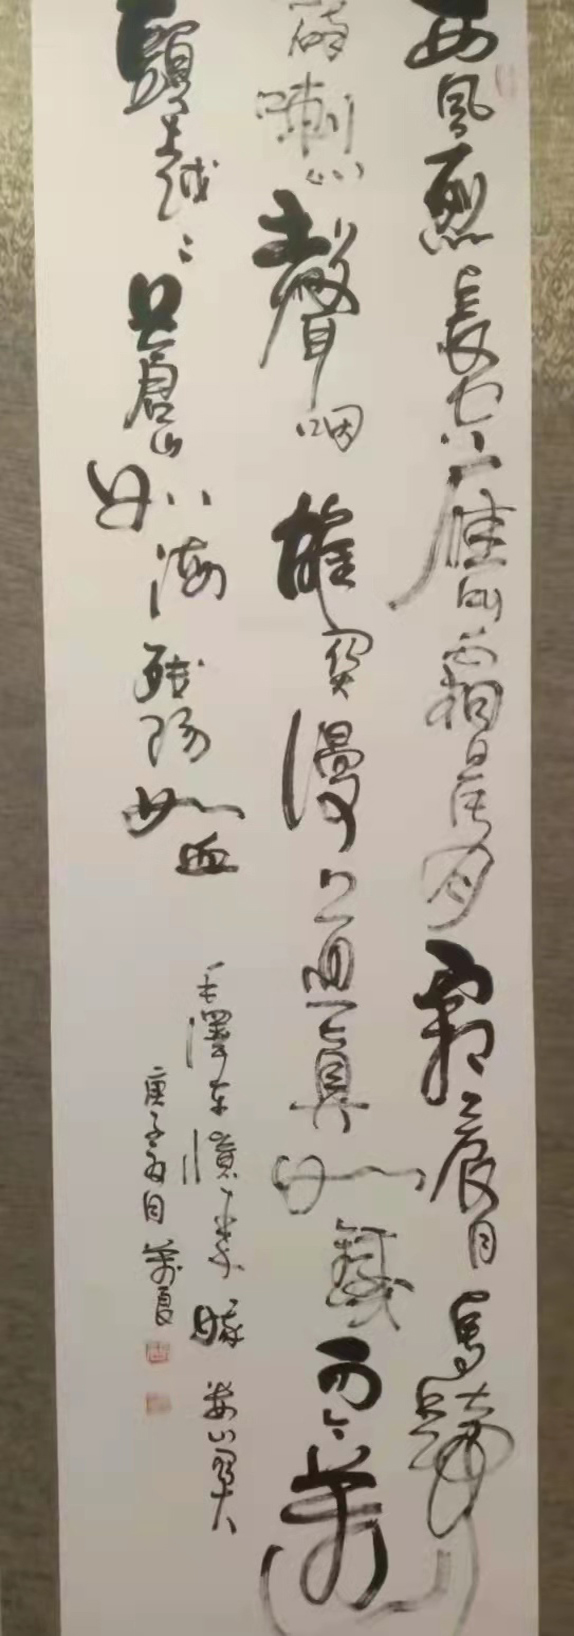 西風烈長空雁叫霜晨月霜晨月馬蹄
碎喇叭聲咽雄關漫道真如鐵而今邁
頭越蒼山如海殘陽如血
毛澤東憶秦娥婁山關
庚子